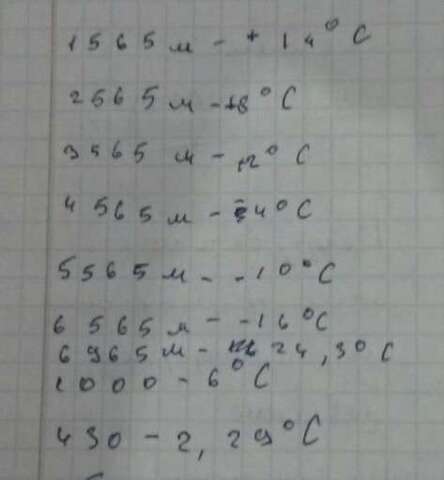 1565 м - +14°C
2565 м - +8°C
3565 м - +2°C
4565 м - -4°C
5565 м - -10°C
6565 м - -16°C
6965 м - 24,3°C
1000 - 6°C
430 - 2,29°C